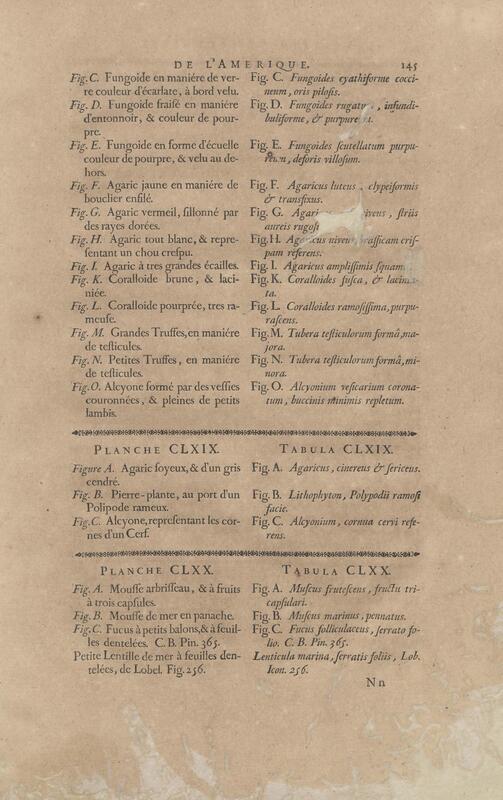 DE L'AMERIQUE. 145
Fig. C. Fungoide en maniére de ver-
re couleur d'écarlate, à bord velu.
Fig. D. Fungoide fraisé en maniére
d'entonnoir, & couleur de pour-
pre.
Fig. E. Fungoide en forme d'écuelle
couleur de pourpre, & velu au de-
hors.
Fig. F. Agaric jaune en maniére de
bouclier enfilé.
Fig. G. Agaric vermeil, sillonné par
des rayes dorées.
Fig. H. Agaric tout blanc, & repre-
sentant un chou crespu.
Fig. I. Agaric à tres grandes écailles.
Fig. K. Coralloide brune, & laci-
niée.
Fig. L. Coralloide pourprée, tres ra-
meuse.
Fig. M. Grandes Truffes, en maniére
de testicules.
Fig. N. Petites Truffes, en maniére
de testicules.
Fig. O. Alcyone formé par des vessies
couronnées, & pleines de petits
lambis.
Fig. C. Fungoides cyathiforme cocci-
neum, oris pilosis.
Fig. D. Fungoides rugat , infundi-
buliforme, & purpure
Fig. E. Fungoides scutellatum purpu-
reum, deforis villosum.
Fig. F. Agaricus luteus , clypeiformis
& transfixus.
Fig. G. striis
aureis rugosi
Fig. H. Agaricus niveus, brassicam cris-
pam referens.
Fig. I. Agaricus amplissimis squam
Fig. K. Coralloides fusca, & lacinia-
ta.
Fig. L. Coralloides ramosissima, purpu-
rascens.
Fig. M. Tubera testiculorum formâ, ma-
jora.
Fig. N. Tubera testiculorum formâ, mi-
nora.
Fig. O. Alcyonium vesicarium corona-
tum, buccinis minimis repletum.
PLANCHE CLXIX.
Figure A. Agaric soyeux, & d'un gris
cendré.
Fig. B. Pierre-plante, au port d'un
Polipode rameux.
Fig. C. Alcyone, representant les cor-
nes d'un Cerf.
TABULA CLXIX.
Fig. A. Agaricus, cinereus & sericeus.
Fig. B. Lithophyton, Polypodii ramosi
facie.
Fig. C. Alcyonium, cornua cervi refe-
rens.
PLANCHE CLXX.
Fig. A. Mousse arbrisseau, & à fruits
à trois capsules.
Fig. B. Mousse de mer en panache.
Fig. C. Fucus à petits balons, & à feuil-
les dentelées. C. B. Pin. 365.
Petite Lentille de mer à feuilles den-
telées, de Lobel. Fig. 256.
TABULA CLXX.
Fig. A. Muscus frutescens, fructu tri-
capsulari.
Fig. B. Muscus marinus, pennatus.
Fig. C. Fucus folliculaceus, serrato fo-
lio. C. B. Pin. 365.
Lenticula marina, serratis foliis, Lob.
Icon. 256.
Nn